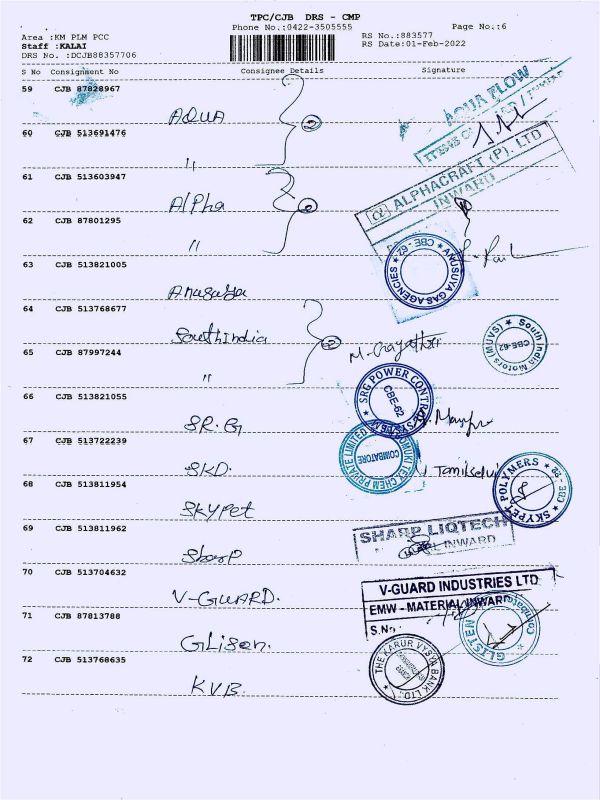 TPC/CJB DRS - CMP
Phone No.:0422-3505555
Page No.:6
Area :KM PLM PCC
RS No.:883577
Staff :KALAI
RS Date:01-Feb-2022
DRS No. :DCJB88357706
S No Consignment No Consignee Details Signature
59 CJB 87828967
AQUA
AQUA FLOW
60 CJB 513691476
"
61 CJB 513603947
Alpha
ALPHACRAFT (P). LTD
INWARD
62 CJB 87801295
"
ANUSUYA GAS AGENCIES CBE - 62
63 CJB 513821005
Anusuya
64 CJB 513768677
South India
M. Gayathri
South India Motors (MUVS) CBE-62
65 CJB 87997244
"
66 CJB 513821055
SR.G
SRG POWER CONTROL SYSTEM CBE-62
67 CJB 513722239
SKD.
CHEM PRIVATE LIMITED COIMBATORE
J. Tamilselvi
68 CJB 513811954
Skypet
SKYPET POLYMERS CBE - 22
69 CJB 513811962
Sharp
SHARP LIQTECH
INWARD
70 CJB 513704632
V-GUARD.
V-GUARD INDUSTRIES LTD
EMW - MATERIAL INWARD
S.No
71 CJB 87813788
GLISEN.
GLISTEN Coimbatore
72 CJB 513768635
KVB.
THE KARUR VYSYA BANK LTD.